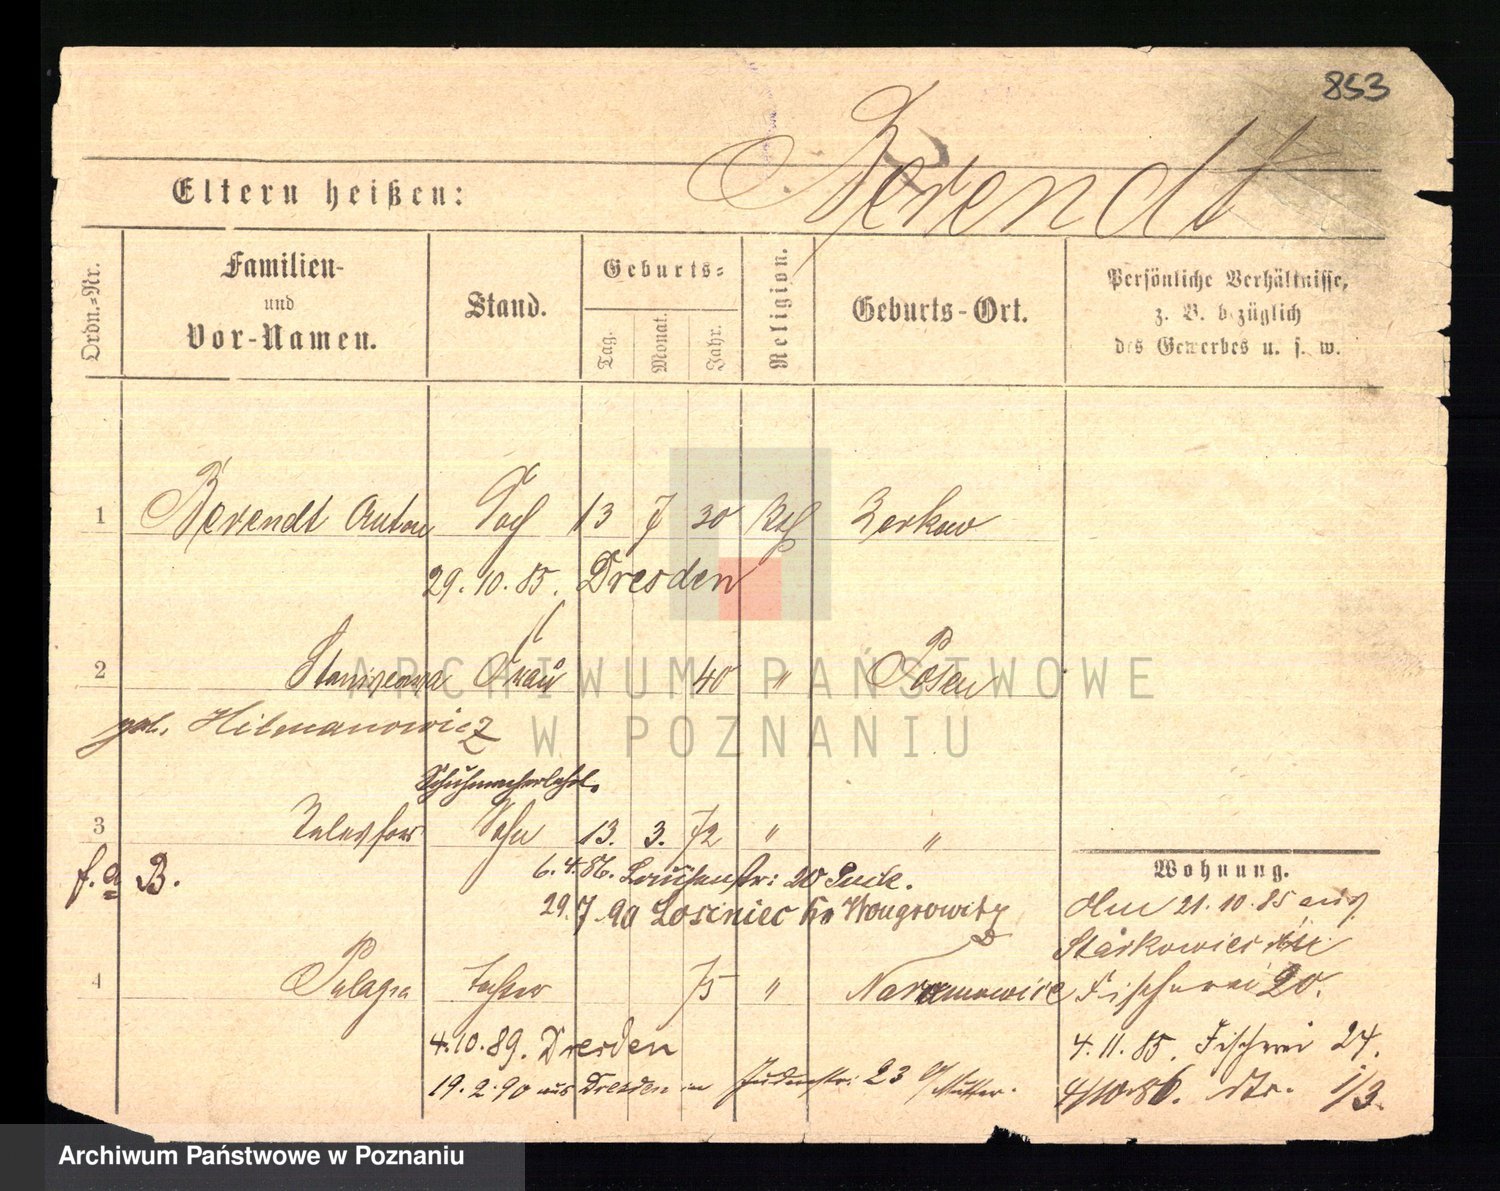 853
Berendt
Eltern heißen:
Ordn.=Nr.
Familien-
und
Vor-Namen.
Stand.
Geburts=
Tag.
Monat.
Jahr.
Religion.
Geburts-Ort.
Persönliche Verhältnisse,
z. B. bezüglich
des Gewerbes u. s. w.
1 Berendt Anton 13 7 30 Kth Zerkow
29.10.85. Dresden
2 Stanislawa Frau 40 " Posen
geb. Hilmanowicz
Schuhmacherlehrl.
3 Telesfor Sohn 13. 3. 72 " "
f. a B.
6.4.86. Louisenstr: 20
29.7.90 Losiniec Kr Wongrowitz
4 Pelagia Tochter 75 " Naramowice
4.10.89. Dresden
19.2.90 aus Dresden in Judenstr: 23 Mutter.
Wohnung.
21.10.85 aus
Starkowiec
Fischerei 20.
4.11.85. Fischerei 24.
4/10.86. dto. 1/3.
ARCHIWUM PAŃSTWOWE
W POZNANIU
Archiwum Państwowe w Poznaniu